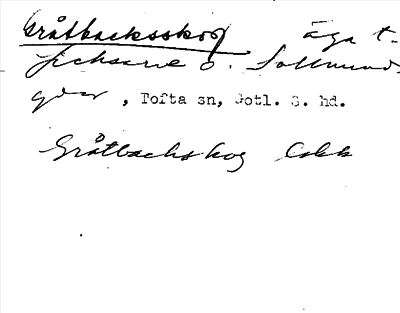 Gråtbacksskog äga t.
Jichsarve o. Sallmunds
gdar, Tofta sn, Gotl. S. hd.
Gråtbackskog